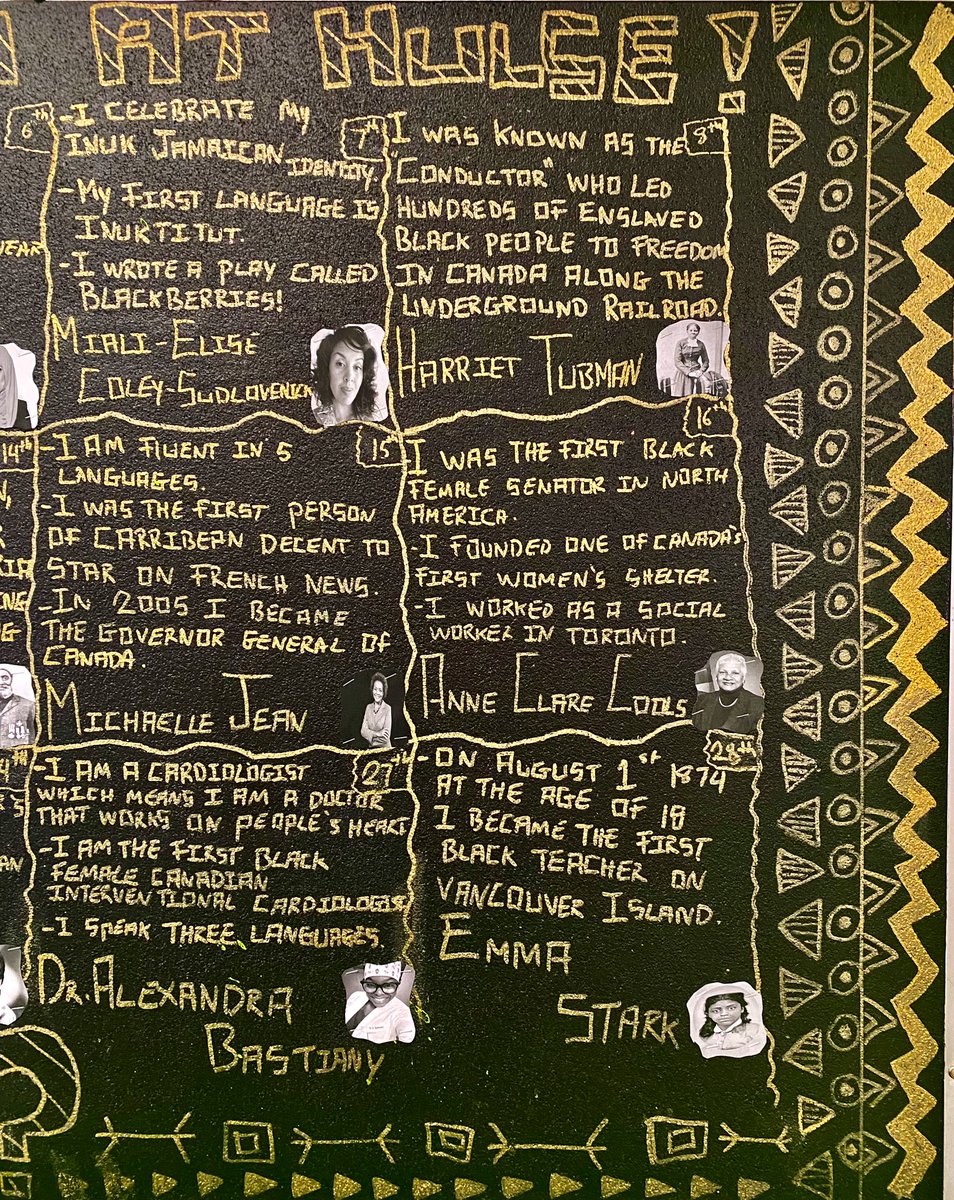 AT HULSE!
6th
-I CELEBRATE MY
INUK JAMAICAN
IDENTITY.
-MY FIRST LANGUAGE IS
INUKTITUT.
-I WROTE A PLAY CALLED
BLACKBERRIES!
MIALI-ELISE
COLEY-SUDLOVENICK
7th
I WAS KNOWN AS THE
"CONDUCTOR" WHO LED
HUNDREDS OF ENSLAVED
BLACK PEOPLE TO FREEDOM
IN CANADA ALONG THE
UNDERGROUND RAILROAD.
HARRIET TUBMAN
8th
14th
-I AM FLUENT IN 5
LANGUAGES.
-I WAS THE FIRST PERSON
OF CARRIBEAN DECENT TO
STAR ON FRENCH NEWS.
-IN 2005 I BECAME
THE GOVERNOR GENERAL OF
CANADA.
MICHAELLE JEAN
15th
I WAS THE FIRST BLACK
FEMALE SENATOR IN NORTH
AMERICA.
-I FOUNDED ONE OF CANADA'S
FIRST WOMEN'S SHELTER.
-I WORKED AS A SOCIAL
WORKER IN TORONTO.
ANNE CLARE COOLS
16th
-I AM A CARDIOLOGIST
WHICH MEANS I AM A DOCTOR
THAT WORKS ON PEOPLE'S HEART
-I AM THE FIRST BLACK
FEMALE CANADIAN
INTERVENTIONAL CARDIOLOGIS
-I SPEAK THREE LANGUAGES.
DR. ALEXANDRA
BASTIANY
27th
-ON AUGUST 1st 1874
AT THE AGE OF 18
I BECAME THE FIRST
BLACK TEACHER ON
VANCOUVER ISLAND.
EMMA
STARK
28th